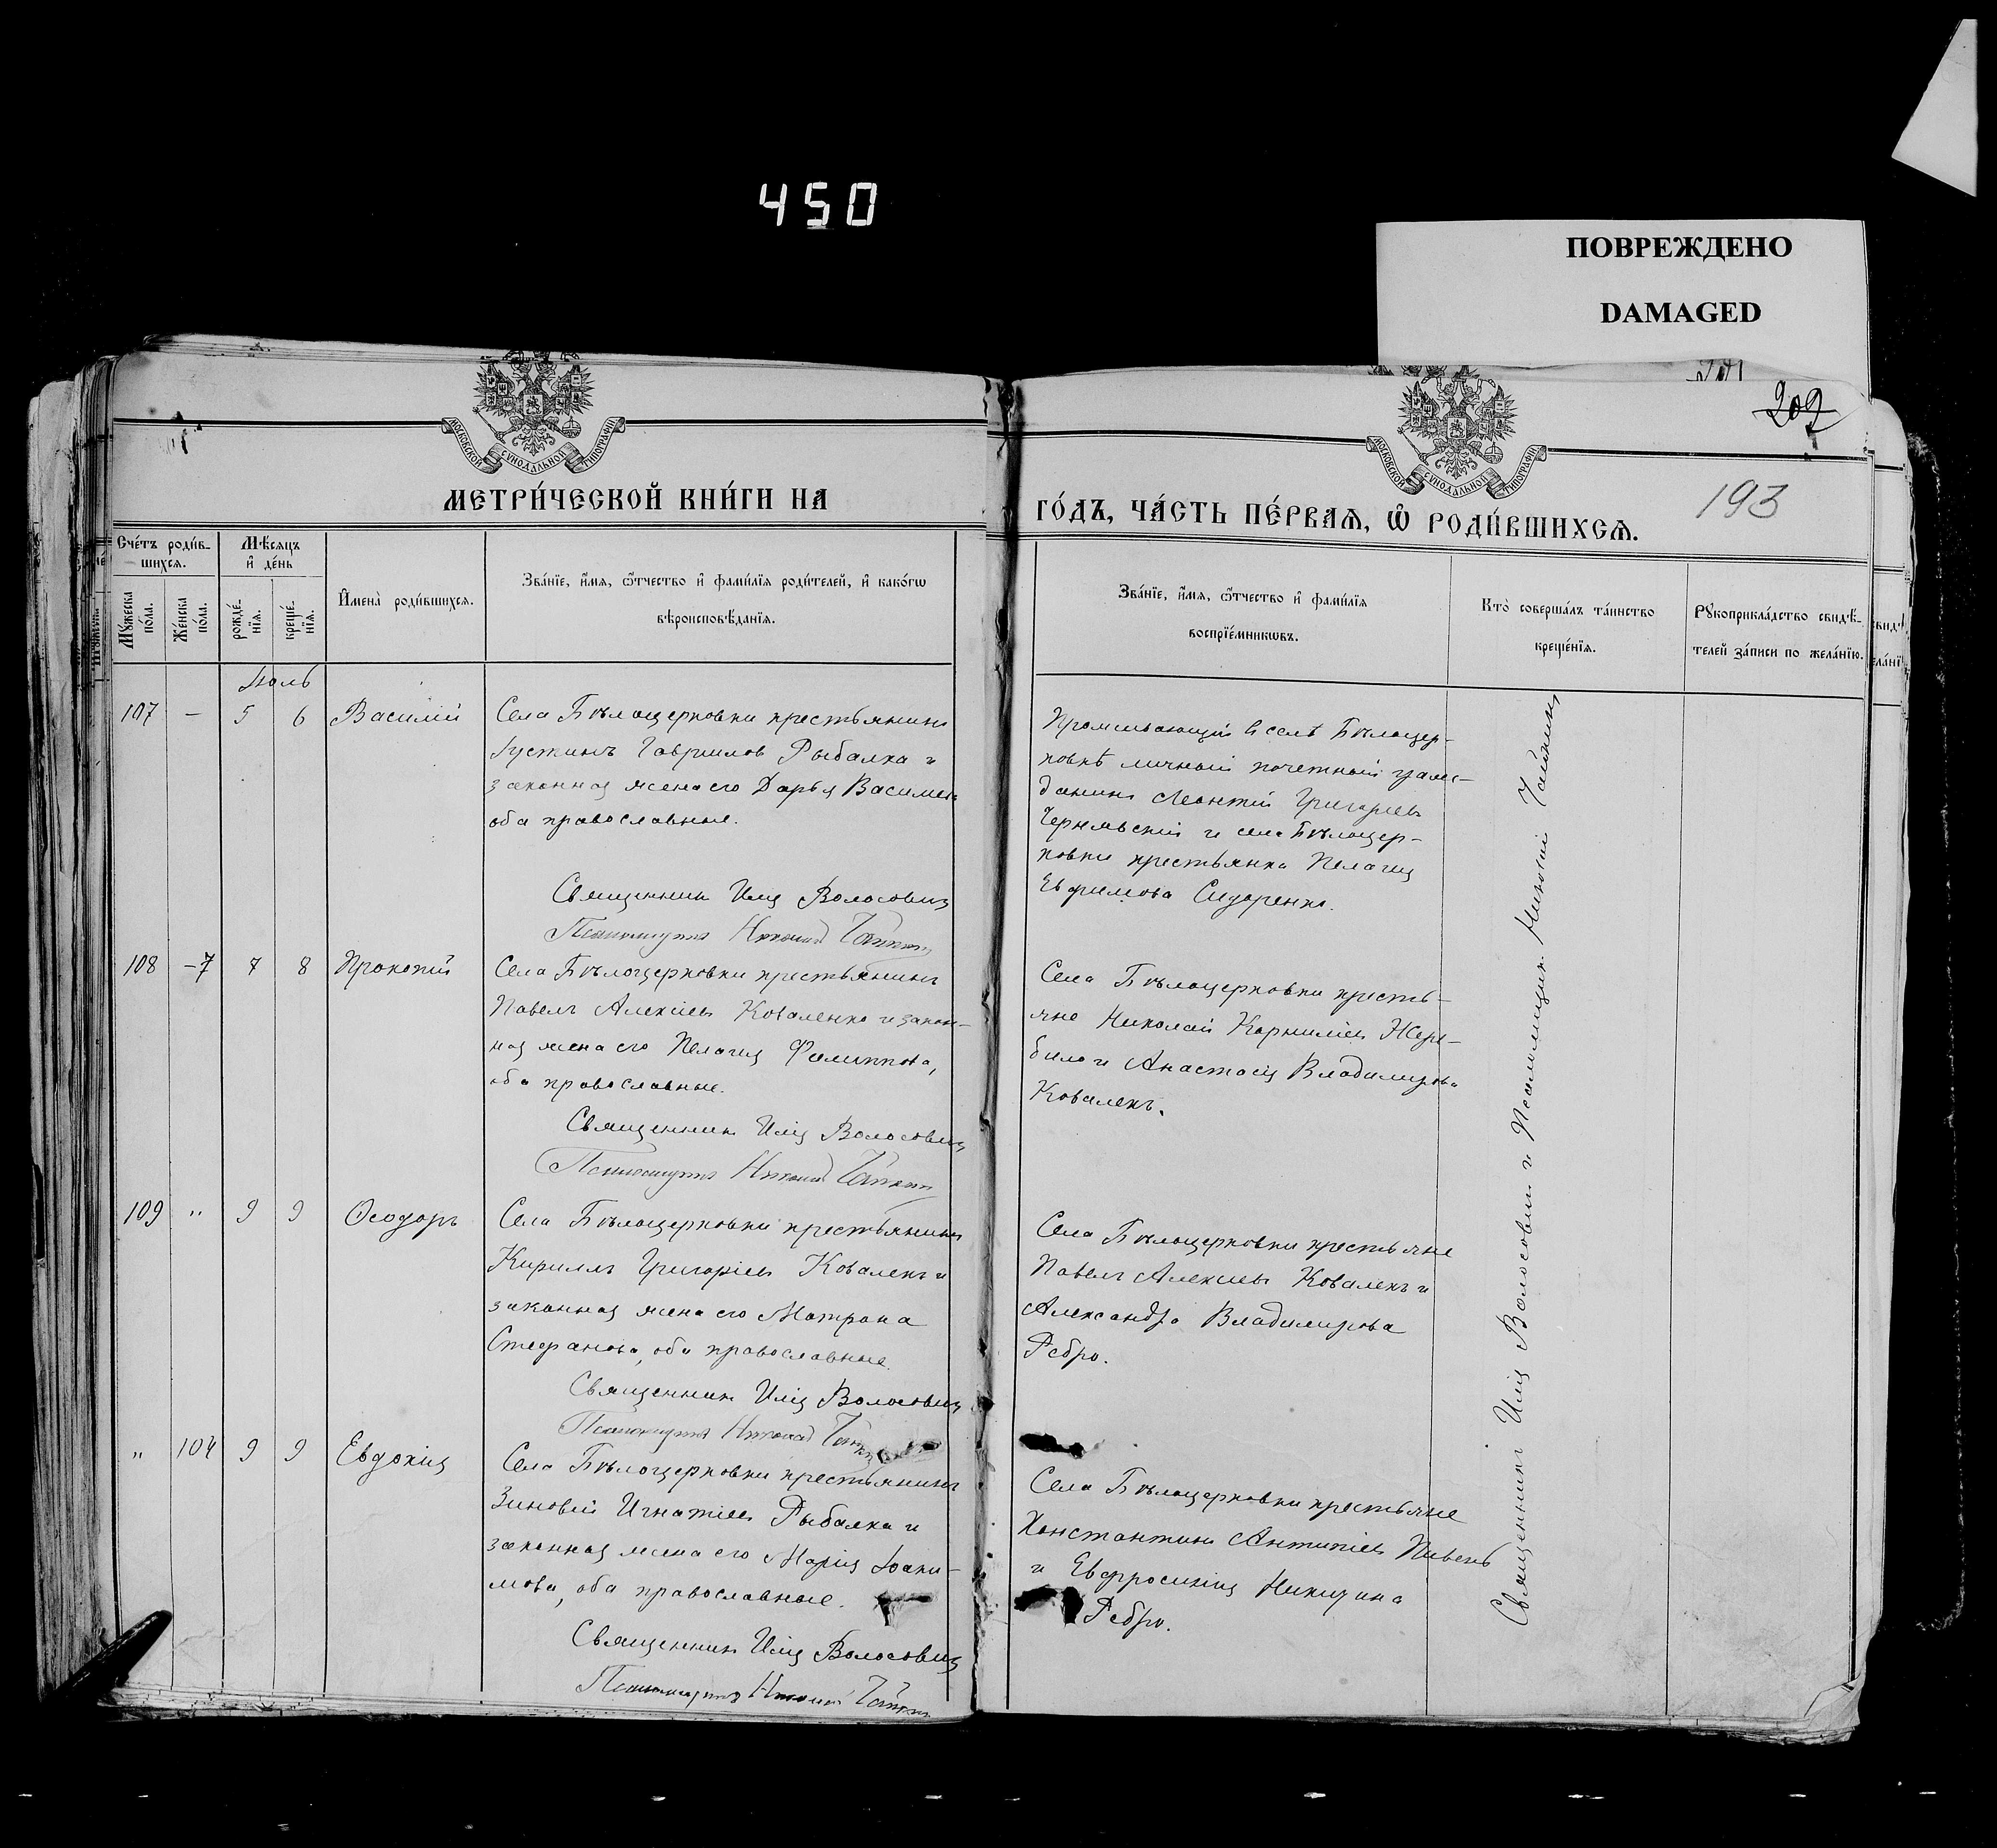 450
ПОВРЕЖДЕНО
DAMAGED
209
193
МОСКОВСКОЙ СѴНОДАЛЬНОЙ ТИПОГРАФІИ
МОСКОВСКОЙ СѴНОДАЛЬНОЙ ТИПОГРАФІИ
МЕТРИ́ЧЕСКОЙ КНИ́ГИ НА
ГО́ДЪ, ЧА́СТЬ ПЕ́РВАѦ, Ѡ҆ РОДИ́ВШИХСѦ.
Сче́тъ роди́в-
шихсѧ.
Мꙋ́жеска по́ла.
Же́нска по́ла.
Мѣ́сѧцъ
и҆ де́нь
рожде́-
нїѧ.
креще́-
нїѧ.
И҆мена̀ роди́вшихсѧ.
Зва́нїе, и҆́мѧ, ѻ҆́тчество и҆ фами́лїѧ роди́телей, и҆ како́гѡ
вѣроисповѣ́данїѧ.
Зва́нїе, и҆́мѧ, ѻ҆́тчество и҆ фами́лїѧ
воспрїе́мникѡвъ.
Кто̀ соверша́лъ та́инство
креще́нїѧ.
Рꙋкоприкла́дство свидѣ́-
телей за́писи по жела́нїю.
Іюль
107 – 5 6 Василій
Села Бѣлоцерковки крестьянинъ
Іустинъ Гавриловъ Рыбалка и
законная жена его Дарья Васильева
оба православные.
Священникъ Илія Волосовичъ
Псаломщикъ Николай
Проживающій в селѣ Бѣлоцер-
ковкѣ личный почетный граж-
данинъ Леонтій Григорьевъ
Чернявскій и села Бѣлоцер-
ковки крестьянка Пелагія
Евфимова Сидоренко.
108 –7 7 8 Прокопій
Села Бѣлоцерковки крестьянинъ
Павелъ Алексіевъ Коваленко и закон-
ная жена его Пелагія Филиппова,
оба православные.
Священникъ Илія Волосовичъ
Псаломщикъ Николай
Села Бѣлоцерковки кресть-
яне Николай Корниліевъ Жере-
било и Анастасія Владимірова
Коваленко.
109 " 9 9 Ѳеодоръ
Села Бѣлоцерковки крестьянинъ
Кириллъ Григоріевъ Коваленко и
законная жена его Матрона
Стефанова, оба православные.
Священникъ Илія Волосовичъ
Псаломщикъ Николай
Села Бѣлоцерковки крестьяне
Павелъ Алексіевъ Коваленко и
Александра Владимірова
Ребро.
" 104 9 9 Евдокія
Села Бѣлоцерковки крестьянинъ
Зиновій Игнатіевъ Рыбалка и
законная жена его Марія Іоаки-
мова, оба православные.
Священникъ Илія Волосовичъ
Псаломщикъ Николай
Села Бѣлоцерковки крестьяне
Константинъ Антипіевъ Пивень
и Евфросинія Никитина
Ребро.
Священникъ Илія Волосовичъ и Псаломщикъ Николай